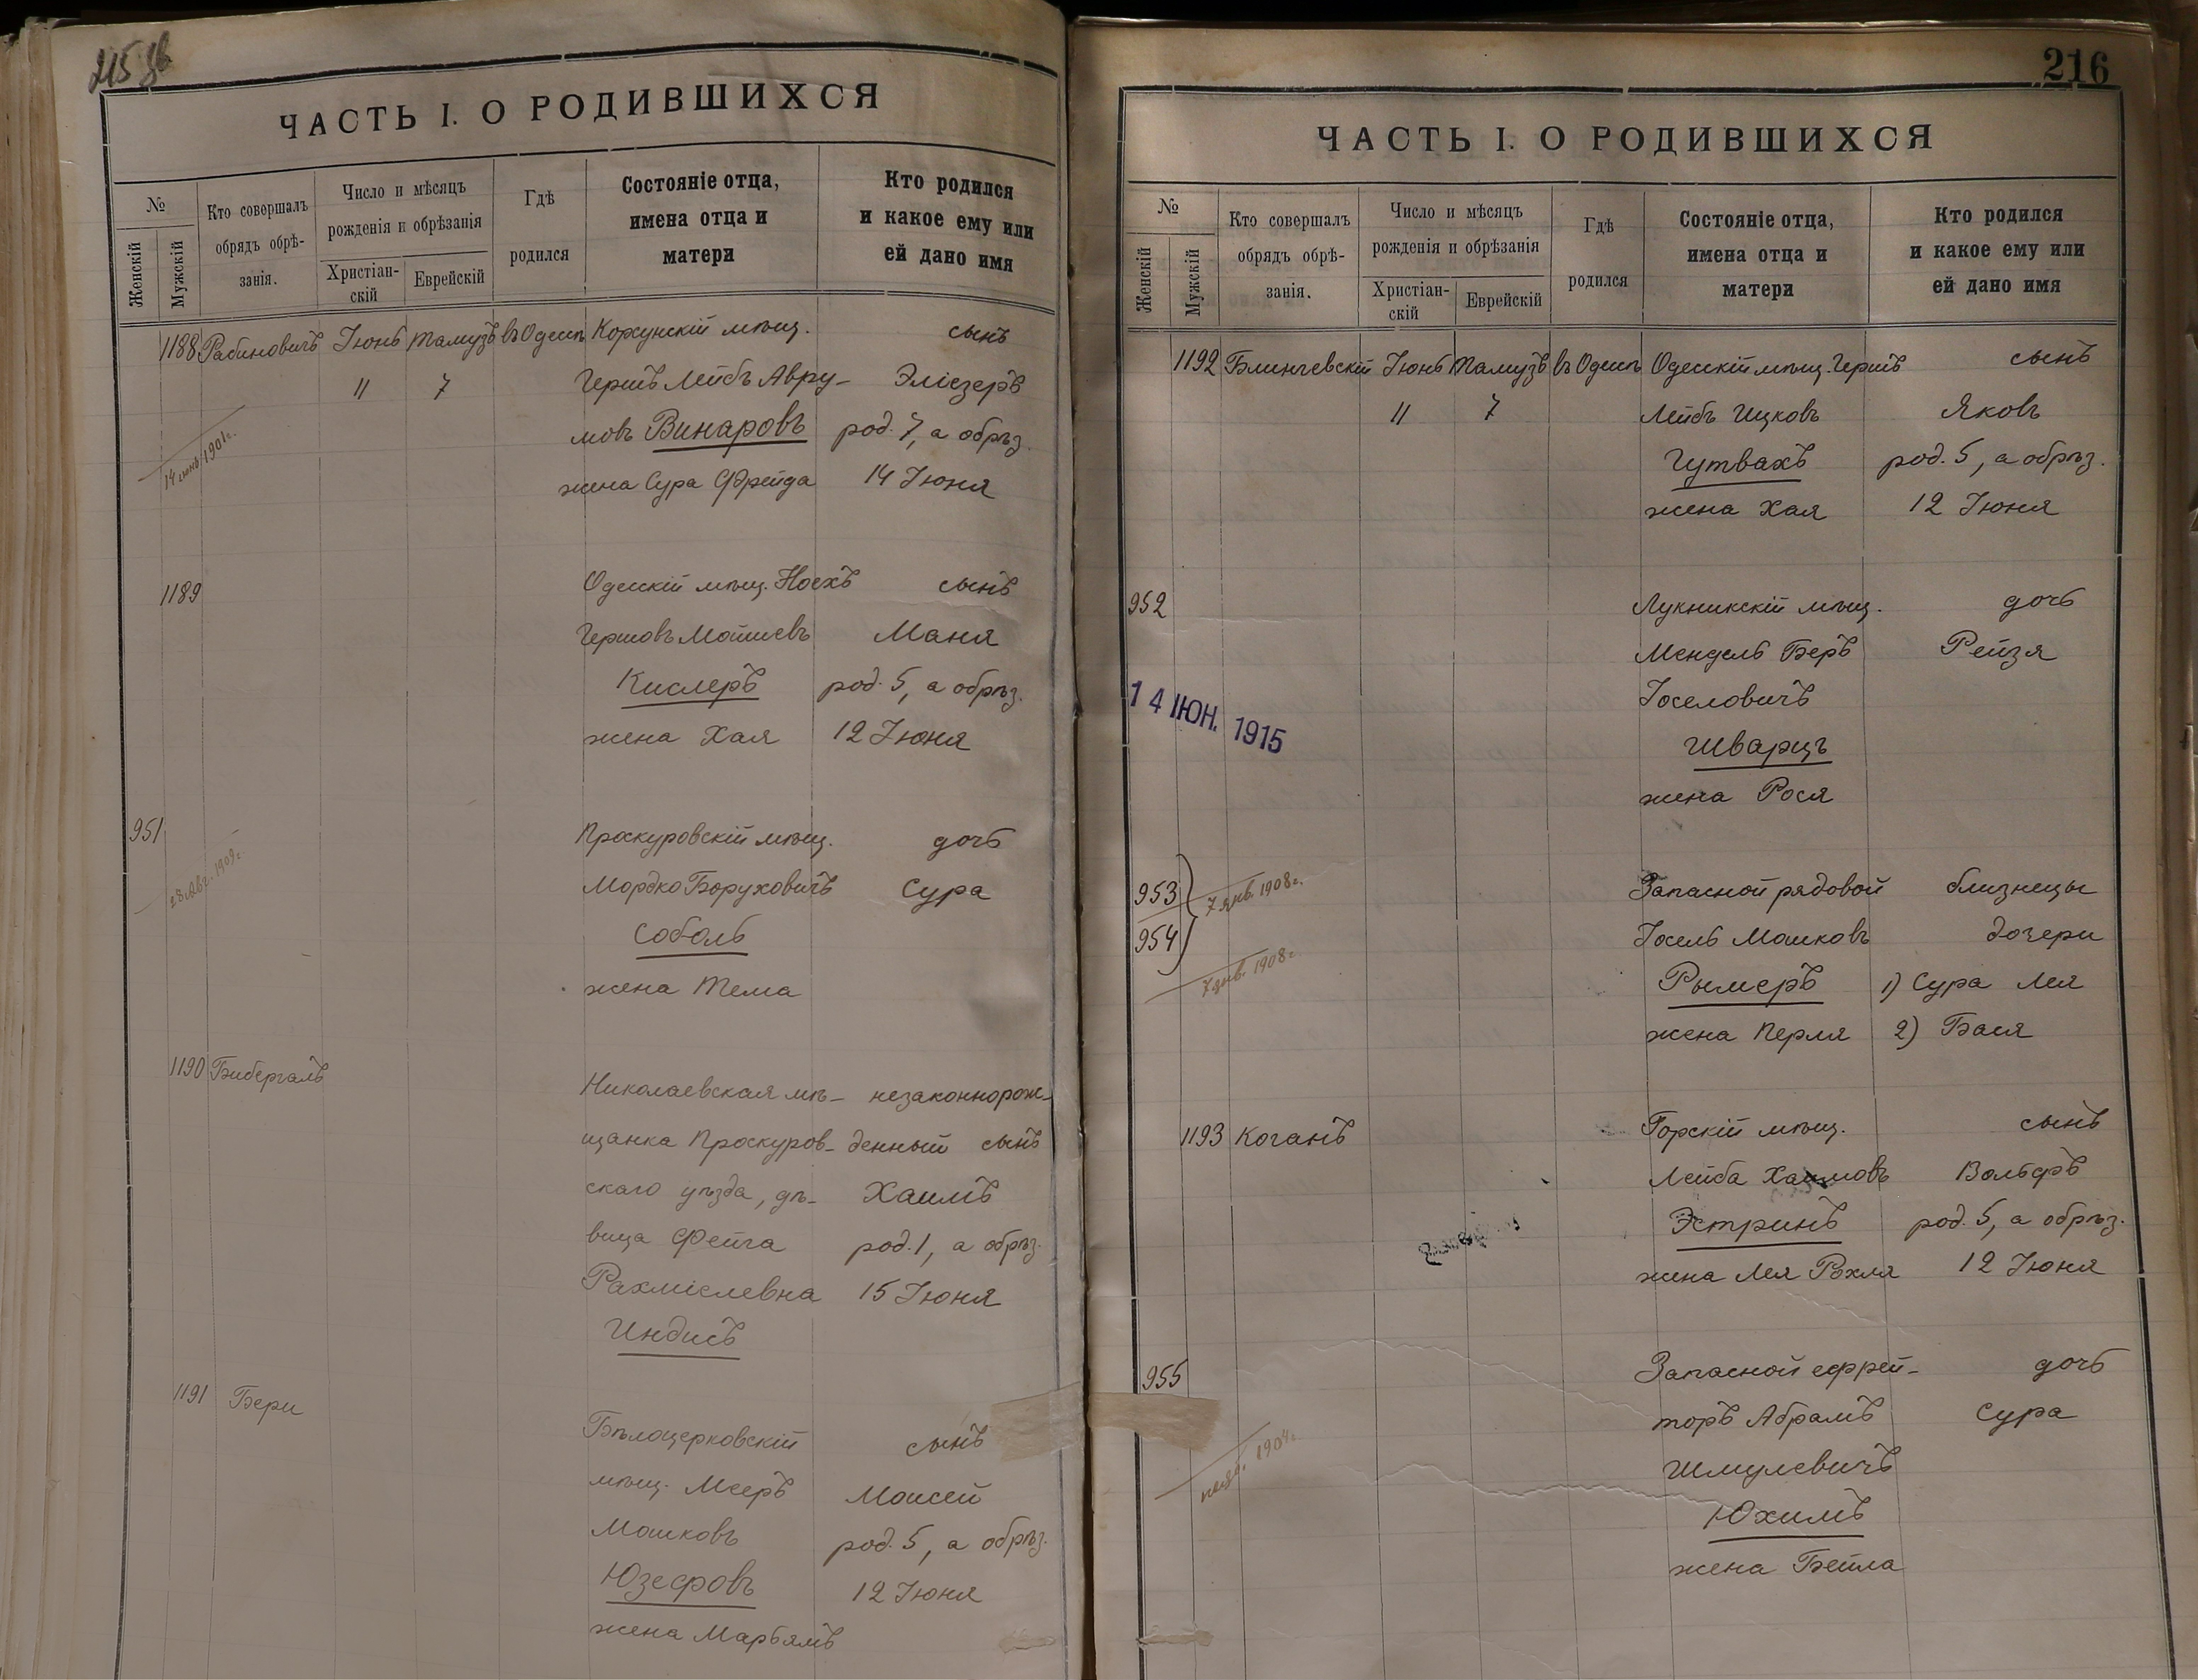 215 зв
ЧАСТЬ I. О РОДИВШИХСЯ
№
Женскій
Мужскій
Кто совершалъ
обрядъ обрѣ-
занія.
Число и мѣсяцъ
рожденія и обрѣзанія
Христіан-
скій
Еврейскій
Гдѣ
родился
Состояніе отца,
имена отца и
матери
Кто родился
и какое ему или
ей дано имя
1188 Рабиновичъ Іюнь Тамузъ въ Одессѣ Корсунскій мѣщ. сынъ
11 7 Гершъ Лейбъ Авру- Эліезеръ
мовъ Винаровъ род. 7, а обрѣз.
14 июнь 1901г.
жена Сура Фрейда 14 Іюня
1189 Одесскій мѣщ. Ноехъ сынъ
Гершовъ Мошневъ Маня
Кислеръ род. 5, а обрѣз.
жена Хая 12 Іюня
951 Проскуровскій мѣщ. дочь
28 Авг. 1909г.
Мордко Боруховичъ Сура
Соболь
жена Тема
1190 Бибергалъ Николаевская мѣ- незаконнорож-
щанка Проскуров- денный сынъ
скаго уѣзда, дѣ- Хаимъ
вица Фейга род. 1, а обрѣз.
Рахміелевна 15 Іюня
Индисъ
1191 Бери Бѣлоцерковскій сынъ
мѣщ. Мееръ Моисей
Мошковъ род. 5, а обрѣз.
Юзефовъ 12 Іюня
жена Марьямъ
216
ЧАСТЬ I. О РОДИВШИХСЯ
№
Женскій
Мужскій
Кто совершалъ
обрядъ обрѣ-
занія.
Число и мѣсяцъ
рожденія и обрѣзанія
Христіан-
скій
Еврейскій
Гдѣ
родился
Состояніе отца,
имена отца и
матери
Кто родился
и какое ему или
ей дано имя
1192 Блинчевскій Іюнь Тамузъ въ Одессѣ Одесскій мѣщ. Гершъ сынъ
11 7 Лейбъ Ицковъ Яковъ
Гутвахъ род. 5, а обрѣз.
жена Хая 12 Іюня
952 Лукникскій мѣщ. дочь
Мендель Беръ Рейзя
Іоселовичъ
14 ІЮН. 1915
Шварцъ
жена Рося
953 7 янв. 1908г. Запасной рядовой близнецы
954 Іосель Мошковъ дочери
7 янв. 1908г.
Рымеръ 1) Сура Лея
жена Перля 2) Бася
1193 Коганъ Горскій мѣщ. сынъ
Лейба Хаимовъ Вольфъ
Эстринъ род. 5, а обрѣз.
жена Лея Рохля 12 Іюня
955 Запасной ефрей- дочь
торъ Абрамъ Сура
1904г.
Шмулевичъ
Юхимъ
жена Бейла